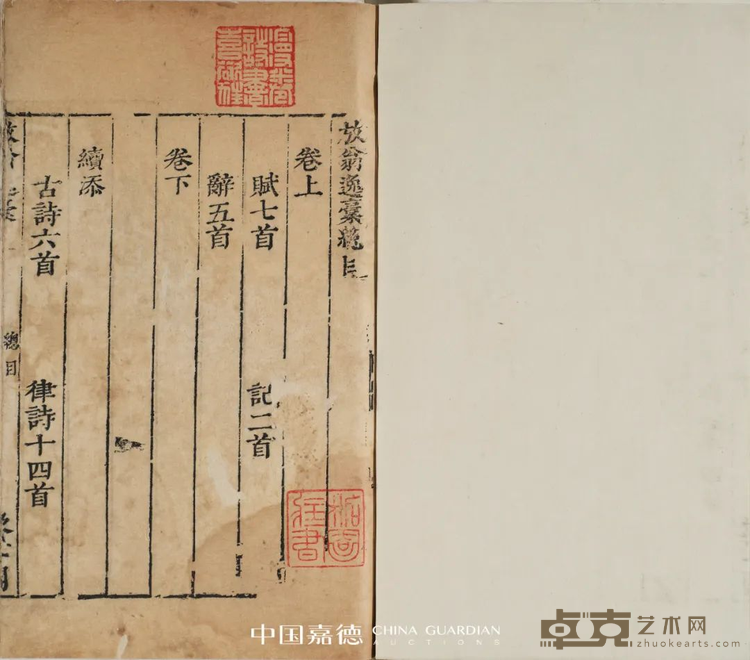 放翁逸稾總目
卷上
賦七首 記二首
辭五首
卷下
續添
古詩六首 律詩十四首
總目
中国嘉德 CHINA GUARDIAN
AUCTIONS
卓克艺术网
zhuokearts.com